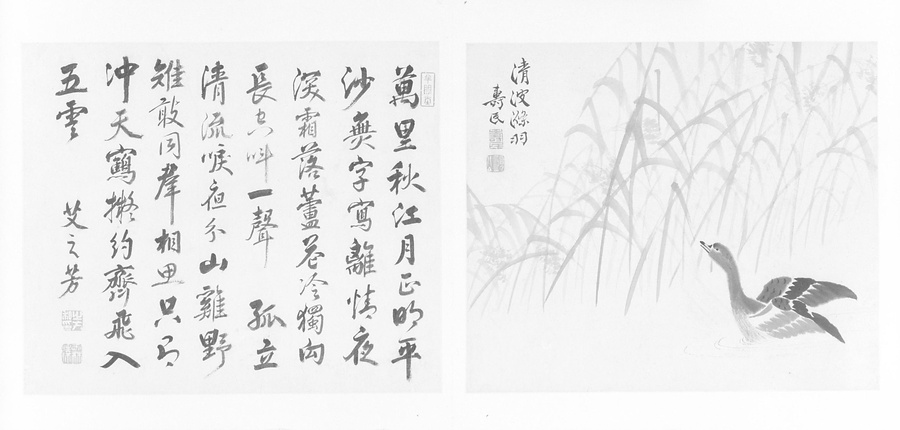 清波滌羽
壽民
萬里秋江月正明平
沙無字寫離情夜
深霜落蘆花冷獨向
長空叫一聲 孤立
清流唳夜分山雞野
雉敢同羣相思只有
冲天鶴擬約齊飛入
五雲
艾之芳